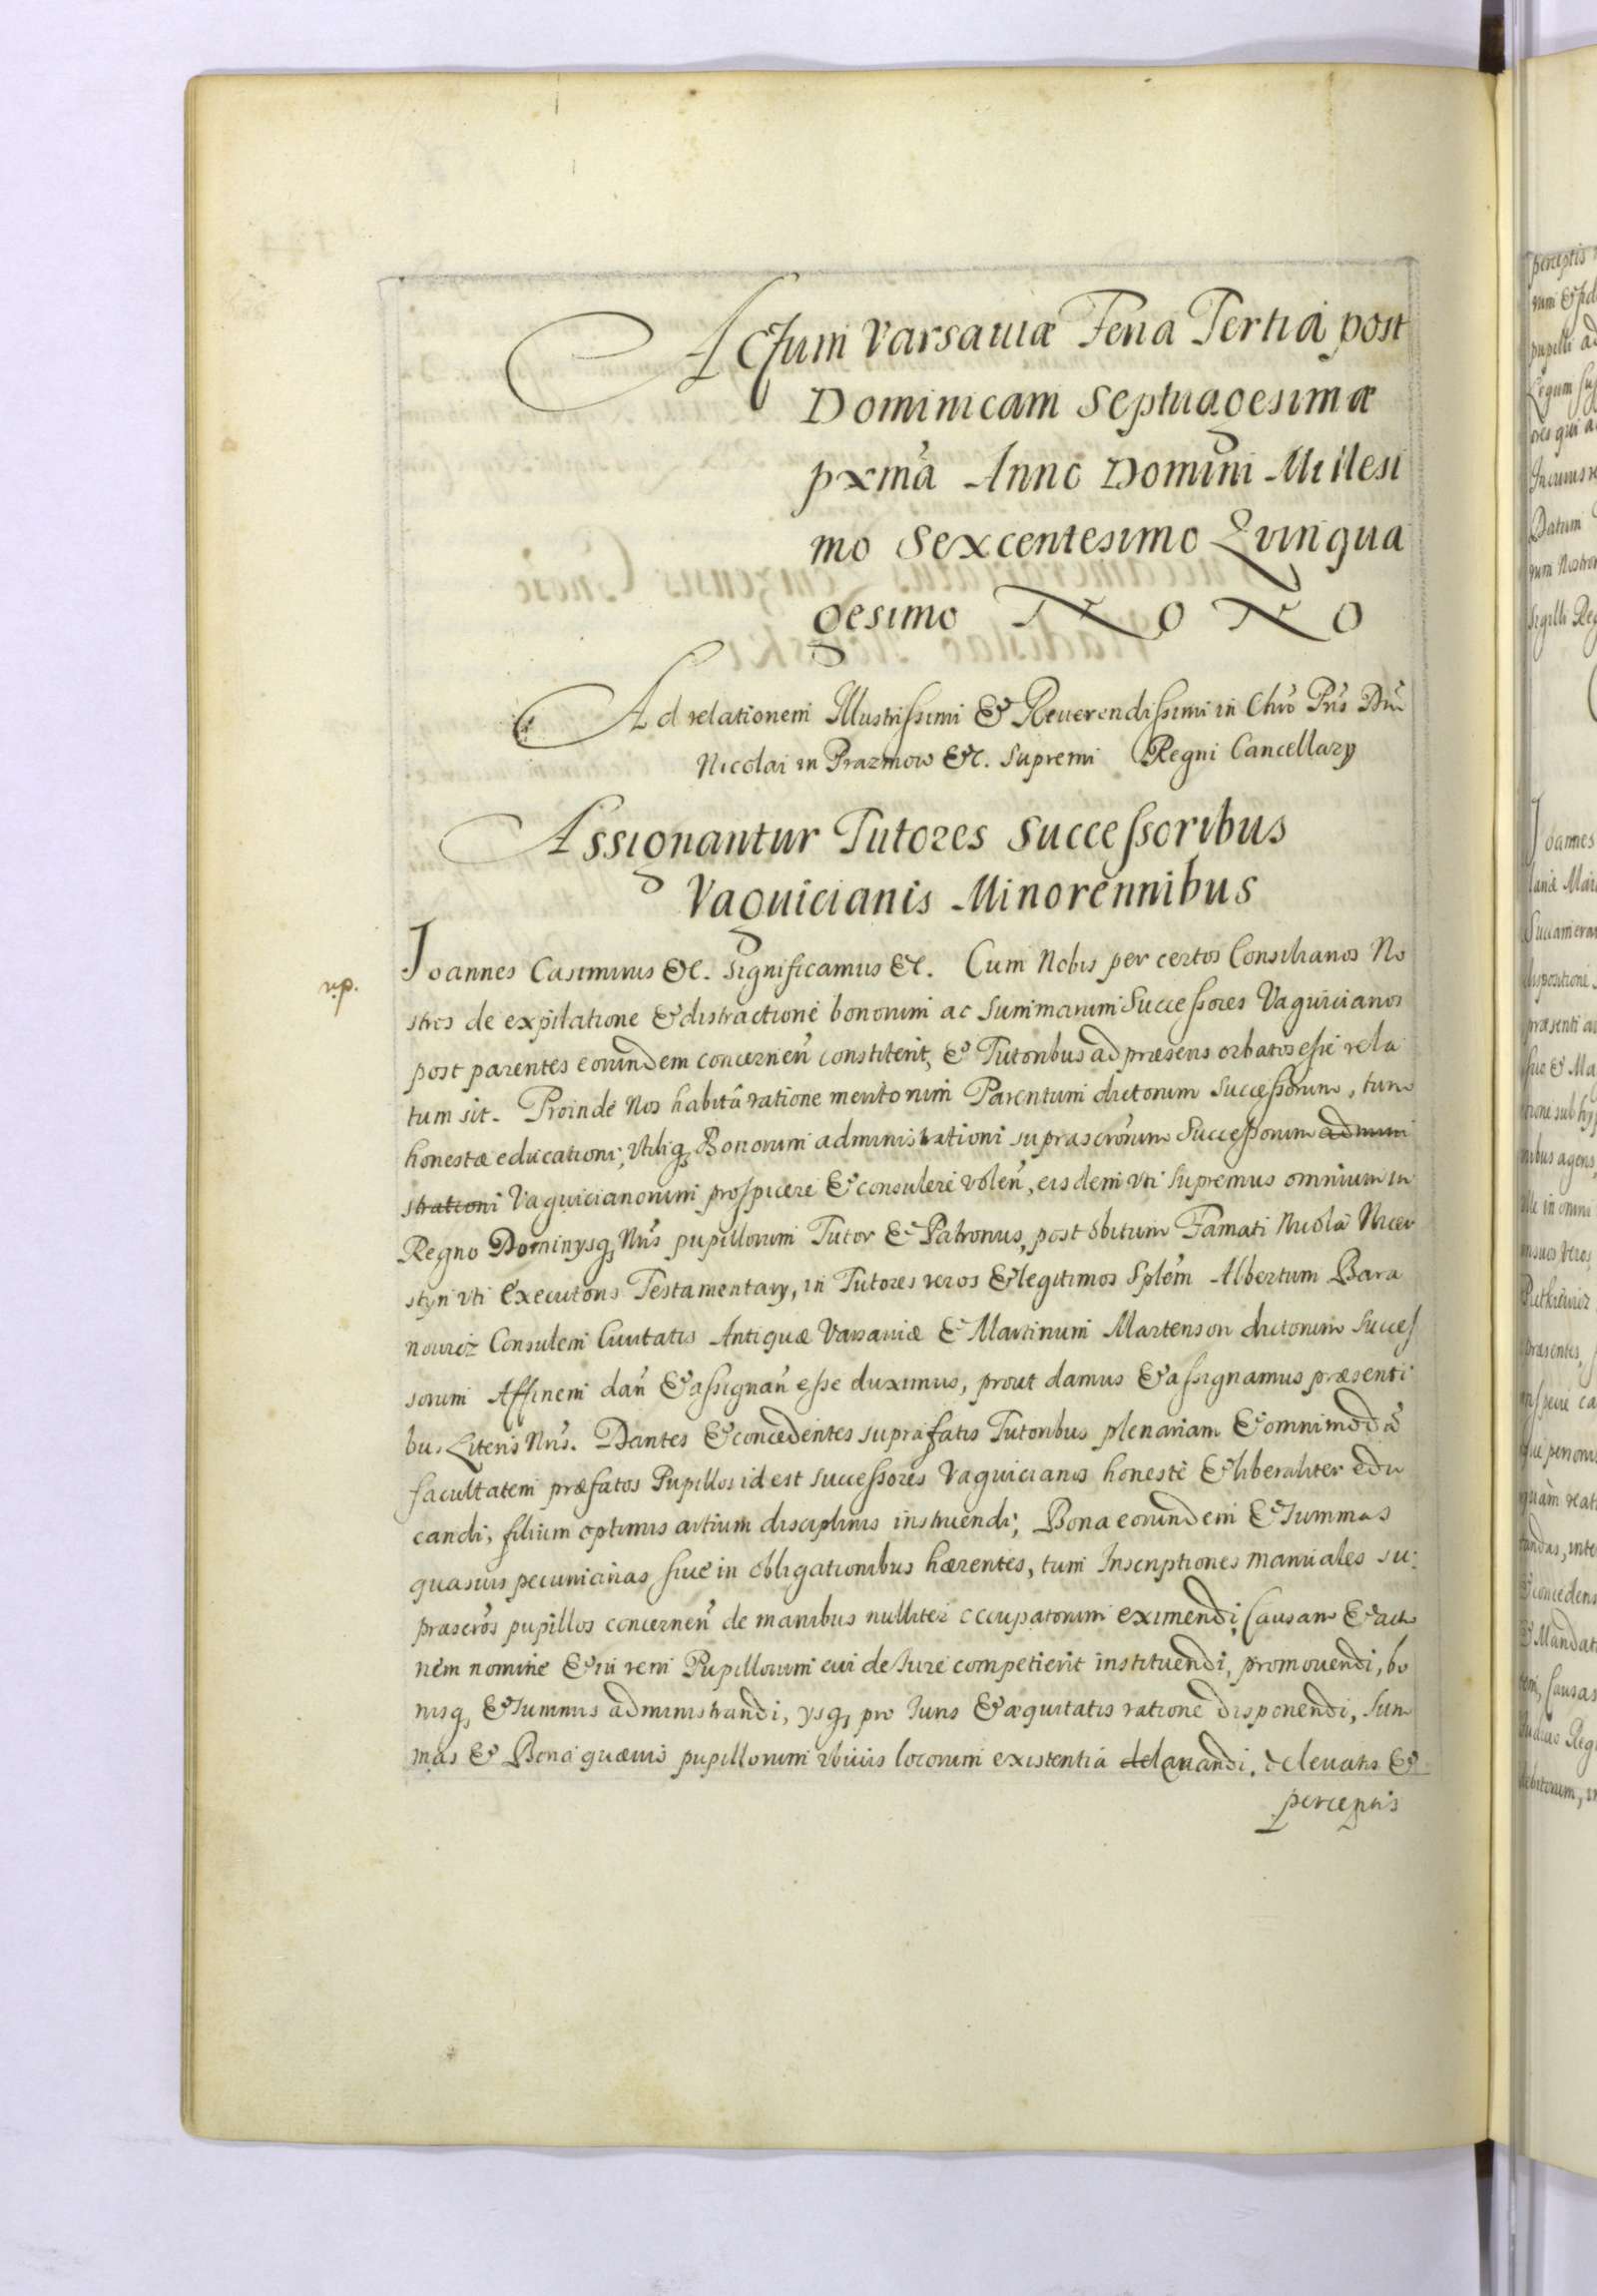 Actum Varsaviæ Feria Tertia post
Dominicam Septuagesimæ
pxm̃a Anno Domini Millesi
mo Sexcentesimo Qvinqua
gesimo NoNo
Ad relationem Illustrissimi & Reuerendissimi in Chrõ Pris Dñi
Nicolai in Prazmow &c. Supremi Regni Cancellarÿ
Assignantur Tutores Successoribus
Vaguicianis Minorennibus
Joannes Casimirus &c. Significamus &c. Cum Nobis per certos Consiliarios No
stros de expilatione & distractione bonorum ac Summarum Successores Vaguicianos
post parentes eorundem concerneñ constiterit, & Tutoribus ad præsens orbatos esse rela
tum sit. Proinde Nos habitâ ratione meritorum Parentum dictorum Successorum, tum
honestæ educationi, utiliq, Bonorum administrationi suprascrõrum Successorum admini
strationi Vaguicianorum prospicere & consulere voleñ, eisdem uti Supremus omnium in
Regno Dominÿsq, Nr̃is pupillorum Tutor & Patronus, post obitum Famati
uti Executoris Testamentarÿ, in Tutores veros & legitimos Splẽm Albertum Bara
nowicz Consulem Ciuitatis Antiquæ Varsaviæ & Martinum Martenson dictorum Succes
sorum Affinem dañ & assignañ esse duximus, prout damus & assignamus præsenti
bus Literis Nr̃is. Dantes & concedentes suprafatis Tutoribus plenariam & omnimodã
facultatem præfatos Pupillos id est successores Vaguicianos honestè & liberaliter edu
candi, filium optimis artium disciplinis instruendi, Bona eorundem & Summas
quasuis pecuniarias siue in obligationibus hærentes, tum Inscriptiones manuales su:
prascrõs pupillos concerneñ de manibus nulliter occupatorum eximendi, Causam & actio
nem nomine & in rem Pupillorum cui de Jure competierit instituendi, promouendi, bo
nisq, & Summis administrandi, ÿsq, pro Juris & æquitatis ratione disponendi, Sum
mas & Bona quæuis pupillorum ubiuis locorum existentia leuandi, de leuatis &
perceptis
v.p.